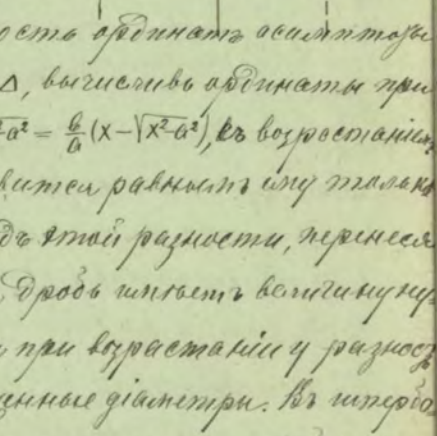 ость ординатъ асимптоты
Δ, вычисливъ ординаты при
²-a² = b/a (x-√x²-a²), съ возрастаніемъ
вится равнымъ ему только
дъ этой разности, перенеся
, дробь имѣетъ величину ну
и при возрастаніи y разность
енные діаметры. Въ гипербо